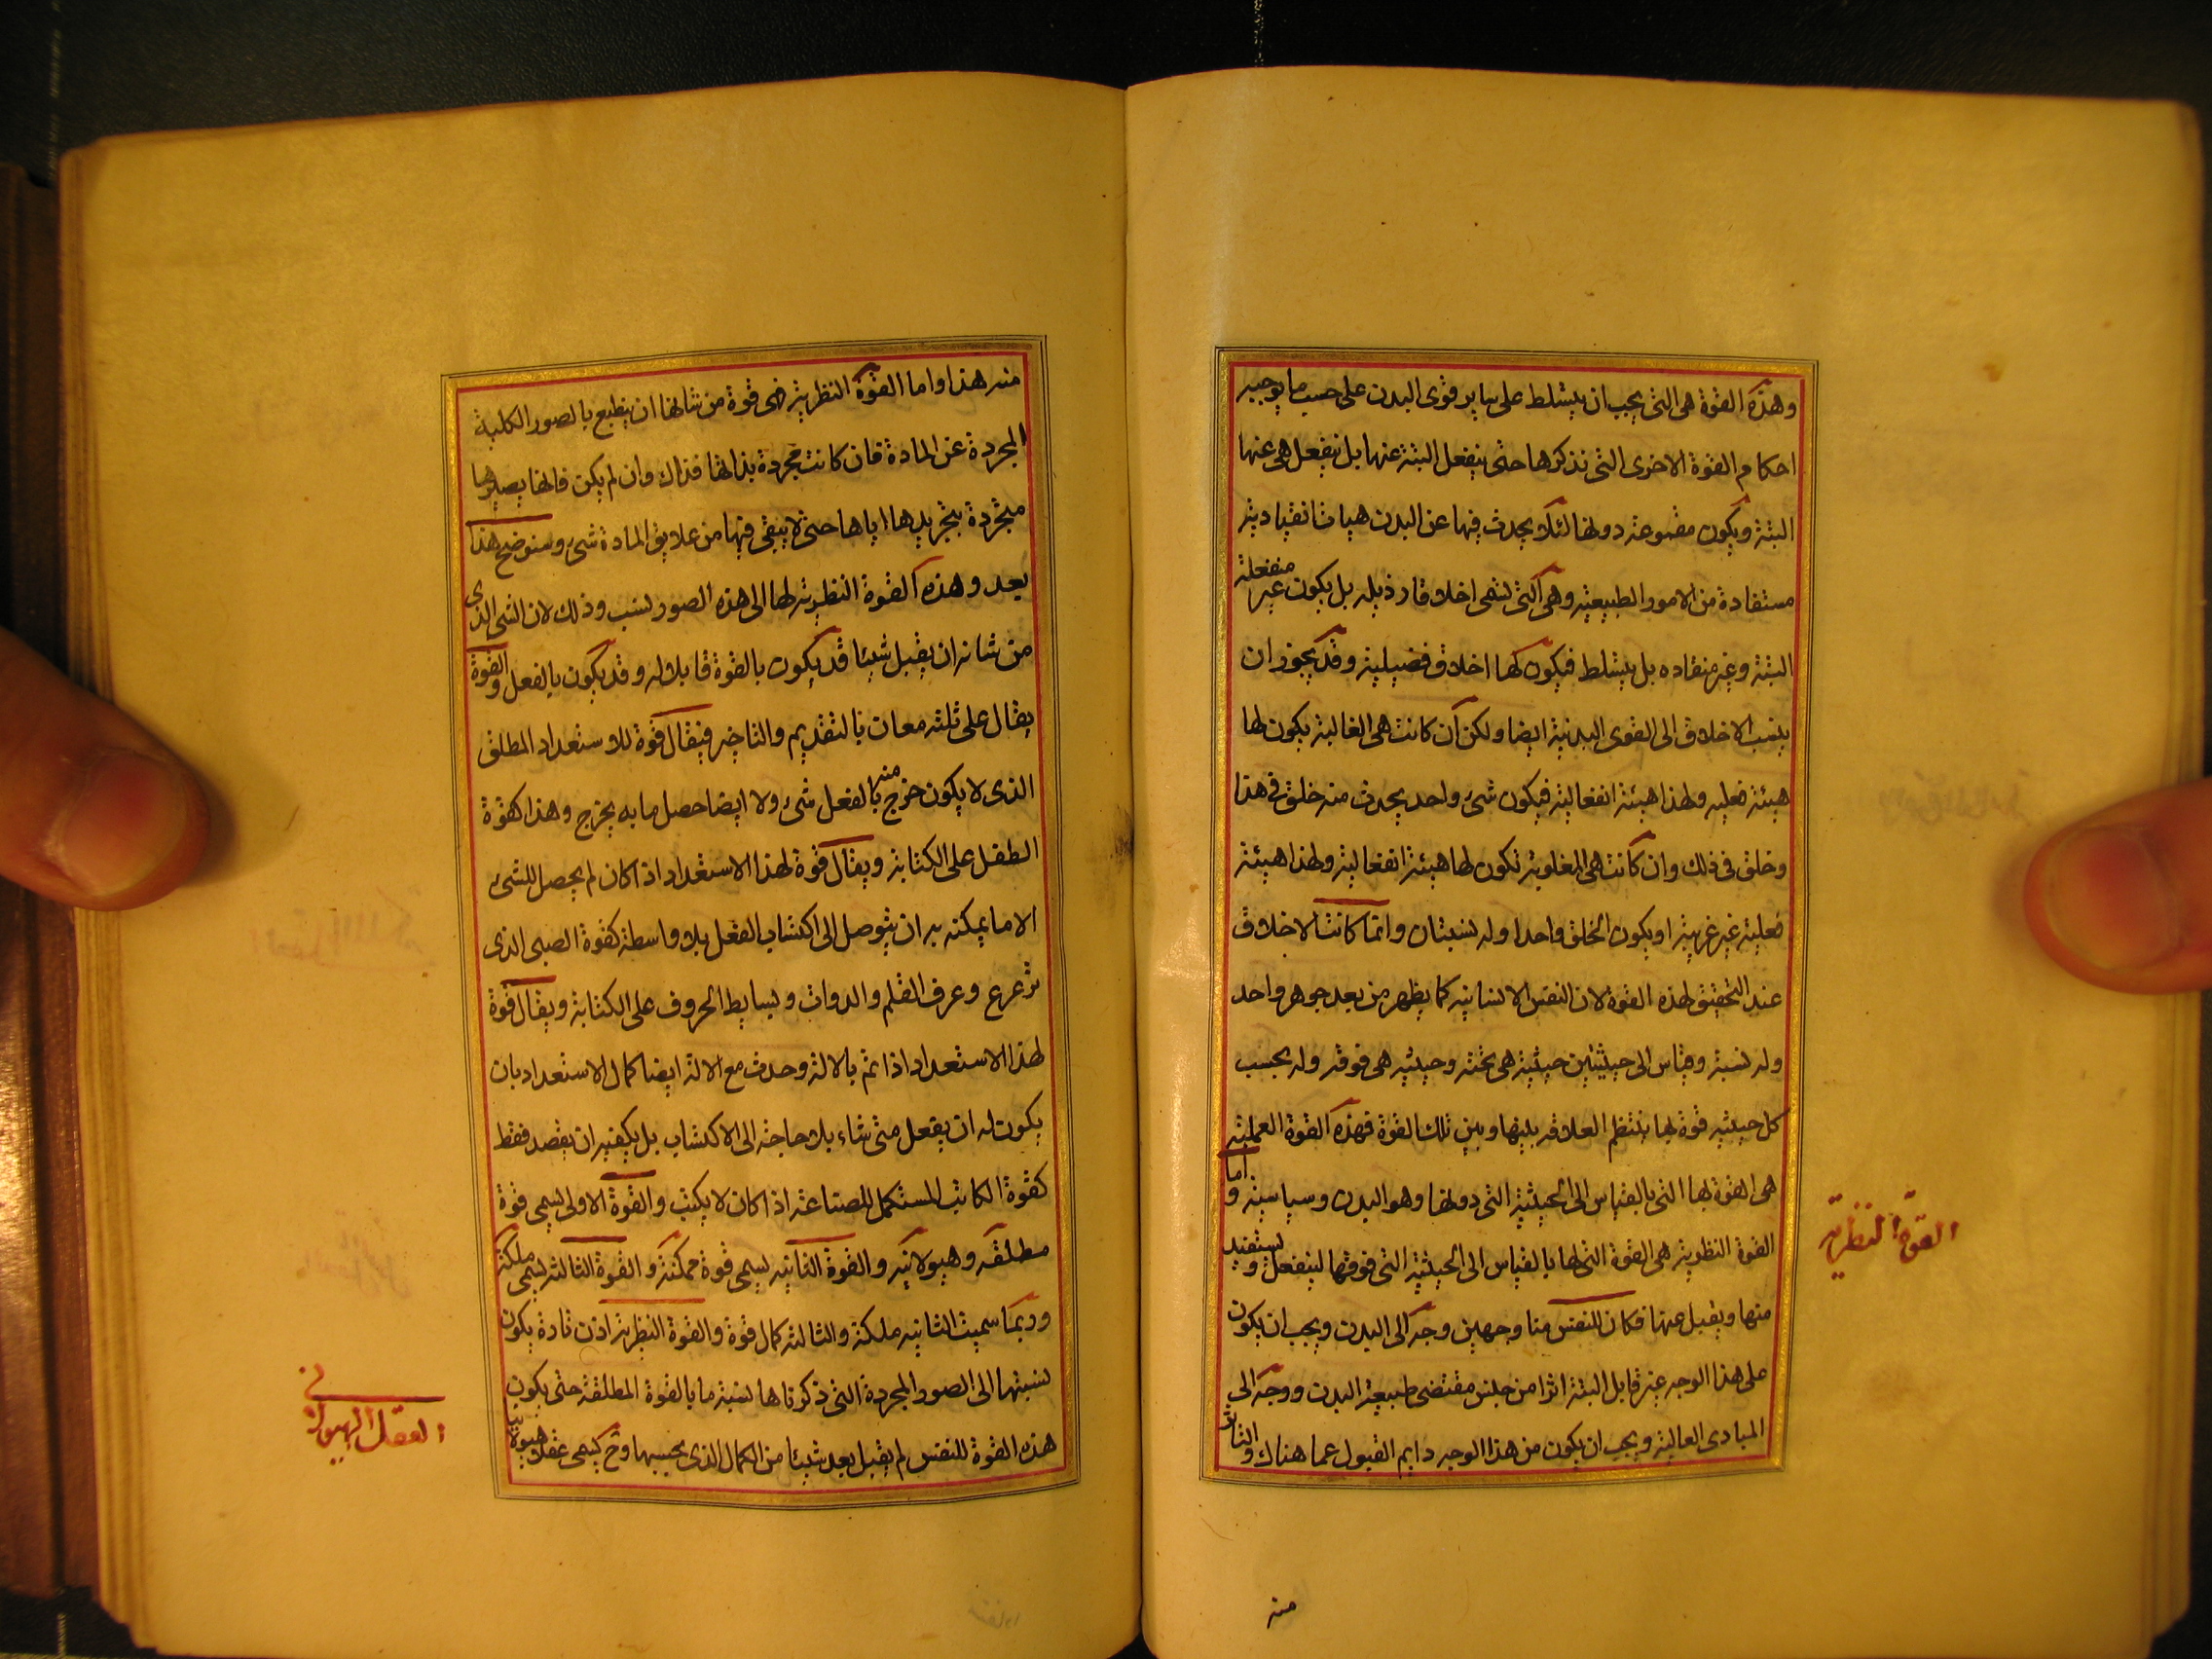 وهذه القوة هى التى يجب ان يتسلط على ساير قوى البدن على حسب ما يوجبه
احكام القوة الاخرى التى نذكرها حتى ينفعل البتة عنها بل ينفعل هى عنها
البتة ويكون مقموعة دونها لئلا يحدث فيها عن البدن هيات انقيادية
مستفادة من الامور الطبيعية وهى التى تسمى اخلاقا رذيله بل يكون غير منفعلة
البتة وغير منقاده بل يتسلط فيكون لها اخلاق فضيلية وقد يجوز ان
ينسب الاخلاق الى القوى البدنية ايضا ولكن ان كانت هى الغالبة يكون لها
هيئة فعليه ولهذا هيئة انفعالية فيكون شئ واحد يحدث منه خلق فى هذا
وخلق فى ذلك وان كانت هى المغلوبة تكون لها هيئة انفعالية ولهذا هيئة
فعلية غير غريبة او يكون الخلق واحدا وله نسبتان وانما كانت الاخلاق
عند التحقيق لهذه القوة لان النفس الانسانية كما يظهر من بعد جوهر واحد
وله نسبة وقياس الى حيثيتين حيثية هى تحته وحيثيه هى فوقه وله بحسب
كل حيثيه قوة بها ينتظم العلاقه بينها وبين تلك القوة فهذه القوة العملية
هى القوة لها التى بالقياس الى الحيثية التى دونها وهو البدن وسياسته واما
القوة النظرية هى القوة التى لها بالقياس الى الحيثية التى فوقها لينفعل ويستفيد
منها ويقبل عنها فكان للنفس منا وجهين وجه الى البدن ويجب ان يكون
على هذا الوجه غير قابل البتة اثرا من جنس مقتضى طبيعة البدن ووجه الى
المبادى العالية ويجب ان يكون من هذا الوجه دايم القبول عما هناك والتاثر
القوة النظرية
منه
منه هذا واما القوة النظرية فهى قوة من شانها ان ينطبع بالصور الكلية
المجردة عن المادة فان كانت مجردة بذاتها فذاك وان لم يكن فانها يصيرها
مجردة بتجريدها اياها حتى لا يبقى فيها من علايق المادة شئ وسنوضح هذا
بعد وهذه القوة النظرية لها الى هذه الصور نسب وذلك لان الشى الذى
من شانه ان يقبل شيئا قد يكون بالقوة قابلا له وقد يكون بالفعل والقوة
يقال على ثلثه معان بالتقديم والتاخير فيقال قوة للاستعداد المطلق
الذى لا يكون خرج منه بالفعل شئ ولا ايضا حصل ما به يخرج وهذا كقوة
الطفل على الكتابة ويقال قوة لهذا الاستعداد اذا كان لم يحصل للشئ
الا ما يمكنه به ان يتوصل الى اكتساب الفعل بلا واسطة كقوة الصبى الذى
ترعرع وعرف القلم والدوات وبسايط الحروف على الكتابة ويقال قوة
لهذا الاستعداد اذا تم بالالة وحدث مع الالة ايضا كمال الاستعداد بان
يكون له ان يفعل متى شاء بلا حاجة الى الاكتساب بل يكفيه ان يقصد فقط
كقوة الكاتب المستكمل للصناعة اذا كان لا يكتب والقوة الاولى يسمى قوة
مطلقه وهيولانيه والقوة الثانيه يسمى قوة ممكنة والقوة الثالثة يسمى ملكة
وربما سميت الثانيه ملكة والثالثة كمال قوة والقوة النظرية اذن تارة يكون
نسبتها الى الصور المجردة التى ذكرناها نسبة ما بالقوة المطلقة حتى يكون
هذه القوة للنفس لم يقبل بعد شيئا من الكمال الذى بحسبها وح يسمى عقلا هيولانيا
العقل الهيولانى